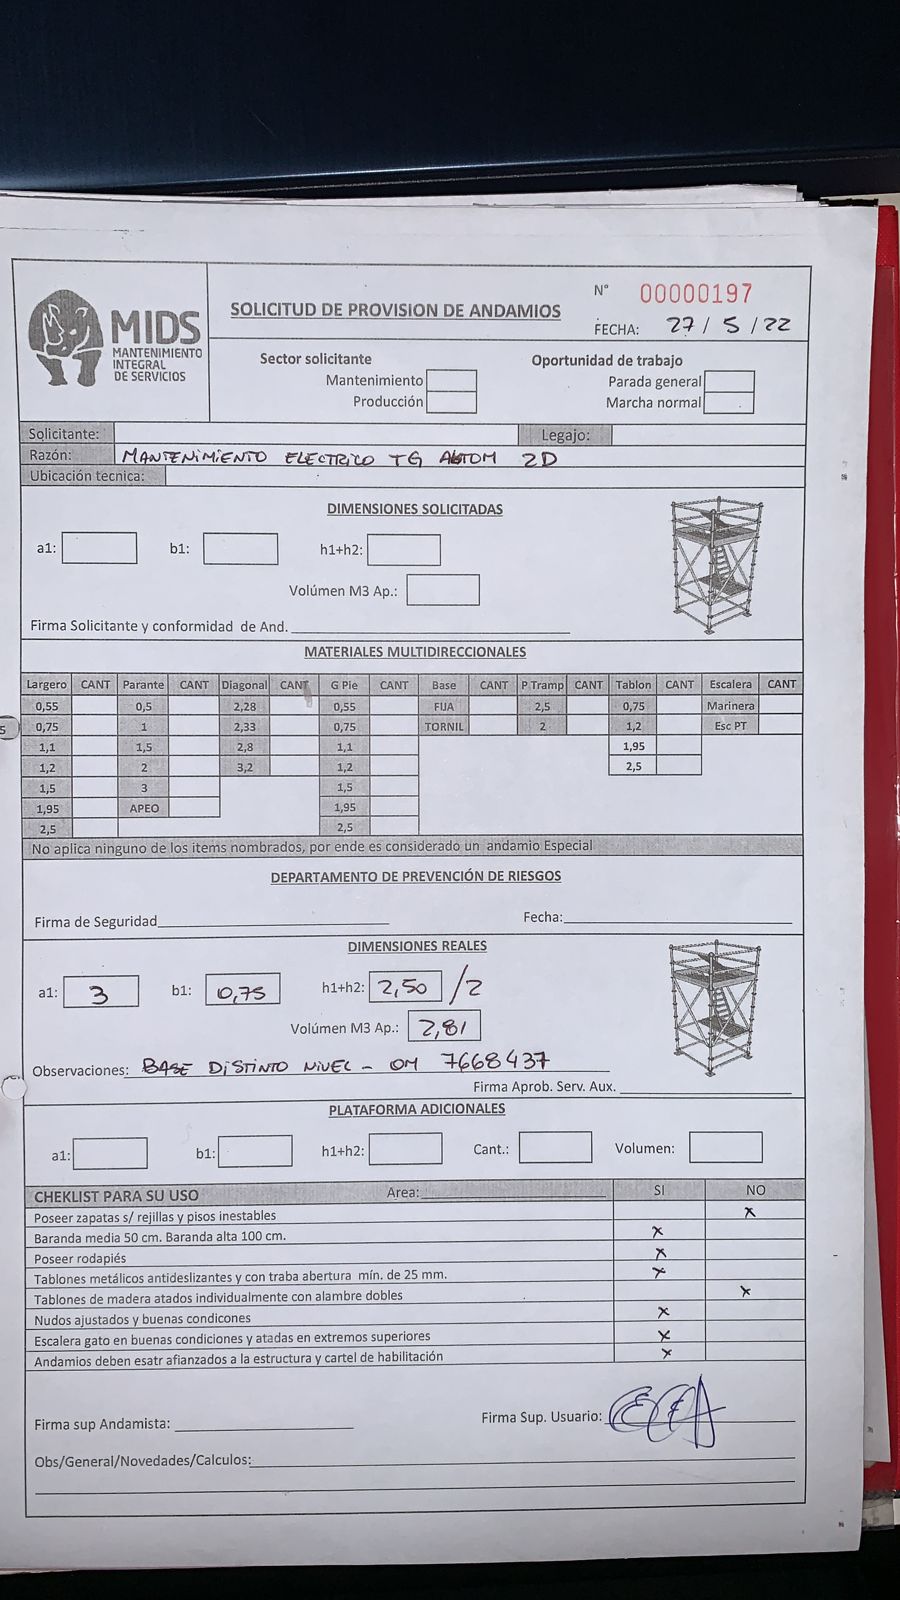 MIDS
MANTENIMIENTO
INTEGRAL
DE SERVICIOS
SOLICITUD DE PROVISION DE ANDAMIOS
N° 00000197
FECHA: 27 / 5 / 22
Sector solicitante
Mantenimiento
Producción
Oportunidad de trabajo
Parada general
Marcha normal
Solicitante: Legajo:
Razón: MANTENIMIENTO ELECTRICO TG AUTOM 2D
Ubicación tecnica:
DIMENSIONES SOLICITADAS
a1: b1: h1+h2:
Volúmen M3 Ap.:
Firma Solicitante y conformidad de And.
MATERIALES MULTIDIRECCIONALES
Largero CANT Parante CANT Diagonal CANT G Pie CANT Base CANT P Tramp CANT Tablon CANT Escalera CANT
0,55 0,5 2,28 0,55 FIJA 2,5 0,75 Marinera
0,75 1 2,33 0,75 TORNIL 2 1,2 Esc PT
1,1 1,5 2,8 1,1 1,95
1,2 2 3,2 1,2 2,5
1,5 3 1,5
1,95 APEO 1,95
2,5 2,5
No aplica ninguno de los items nombrados, por ende es considerado un andamio Especial
DEPARTAMENTO DE PREVENCIÓN DE RIESGOS
Firma de Seguridad Fecha:
DIMENSIONES REALES
a1: 3 b1: 0,75 h1+h2: 2,50 /2
Volúmen M3 Ap.: 2,81
Observaciones: BASE DISTINTO NIVEL - OM 7668437
Firma Aprob. Serv. Aux.
PLATAFORMA ADICIONALES
a1: b1: h1+h2: Cant.: Volumen:
CHEKLIST PARA SU USO Area: SI NO
Poseer zapatas s/ rejillas y pisos inestables x
Baranda media 50 cm. Baranda alta 100 cm. x
Poseer rodapiés x
Tablones metálicos antideslizantes y con traba abertura mín. de 25 mm. x
Tablones de madera atados individualmente con alambre dobles x
Nudos ajustados y buenas condicones x
Escalera gato en buenas condiciones y atadas en extremos superiores x
Andamios deben esatr afianzados a la estructura y cartel de habilitación x
Firma sup Andamista: Firma Sup. Usuario:
Obs/General/Novedades/Calculos: